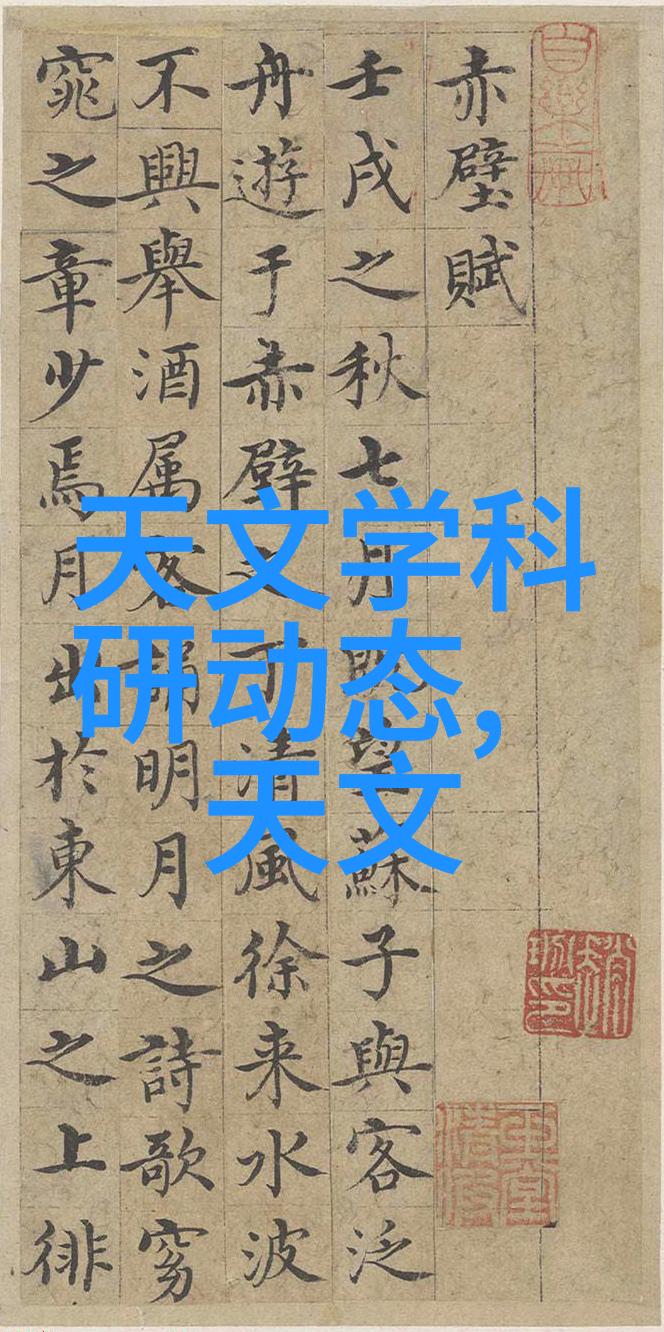 赤壁賦
壬戌之秋七月既望蘇子與客泛
舟遊于赤壁之下清風徐来水波
不興舉酒属客誦明月之詩歌窈
窕之章少焉月出於東山之上徘
天文学科
研动态,
天文